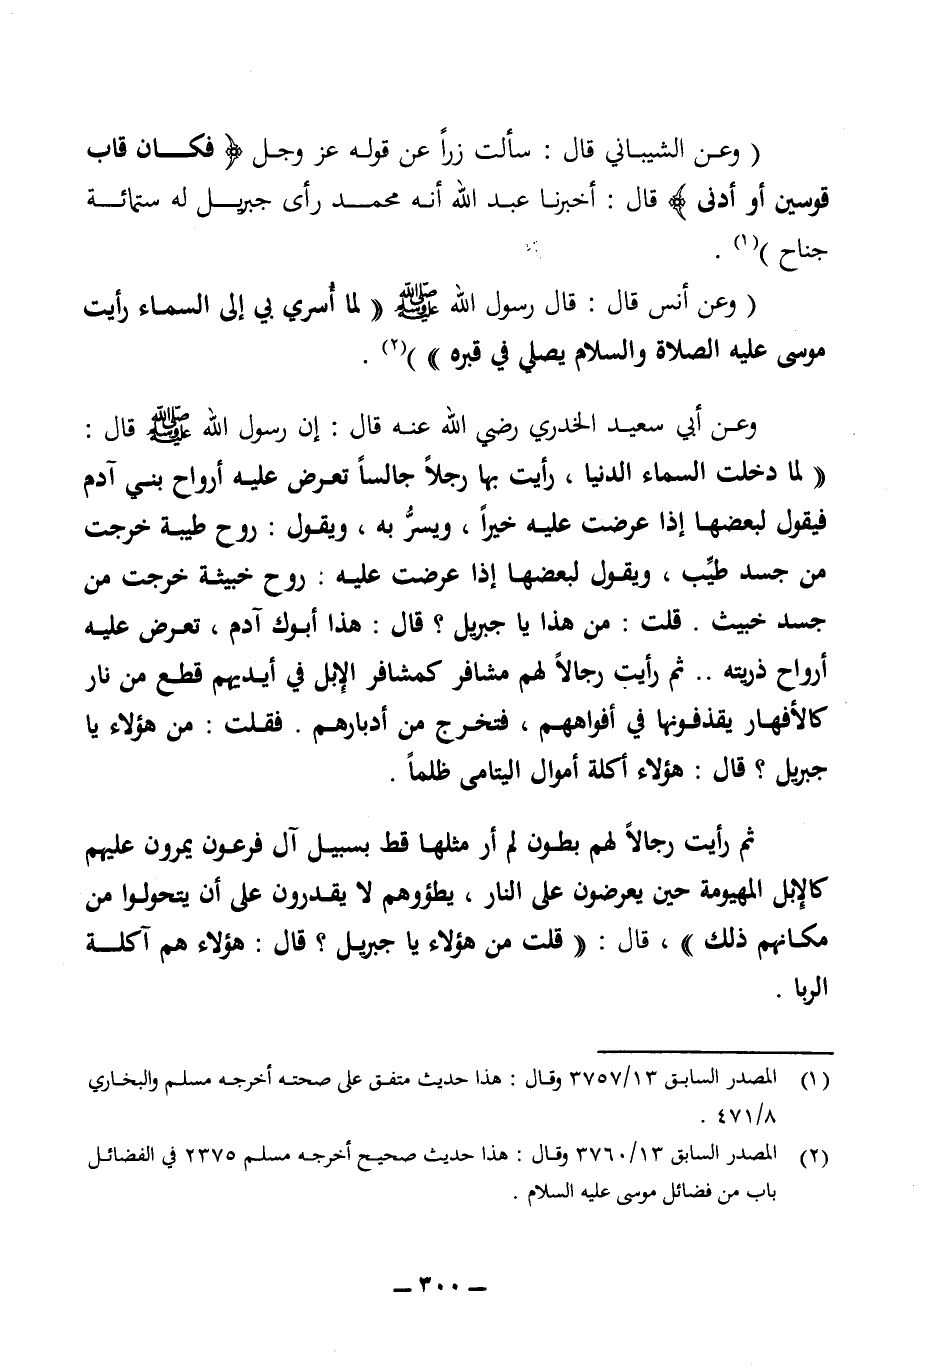 ( وعن الشيباني قال : سألت زراً عن قوله عز وجل ﴿ فكان قاب
قوسين أو أدنى ﴾ قال : أخبرنا عبد الله أنه محمد رأى جبريل له ستمائة
جناح )(١) .
( وعن أنس قال : قال رسول الله ﷺ « لما أُسري بي إلى السماء رأيت
موسى عليه الصلاة والسلام يصلي في قبره » )(٢) .
وعن أبي سعيد الخدري رضي الله عنه قال : إن رسول الله ﷺ قال :
« لما دخلت السماء الدنيا ، رأيت بها رجلاً جالساً تعرض عليه أرواح بني آدم
فيقول لبعضها إذا عرضت عليه خيراً ، ويسرُّ به ، ويقول : روح طيبة خرجت
من جسد طيِّب ، ويقول لبعضها إذا عرضت عليه : روح خبيثة خرجت من
جسد خبيث . قلت : من هذا يا جبريل ؟ قال : هذا أبوك آدم ، تعرض عليه
أرواح ذريته .. ثم رأيت رجالاً لهم مشافر كمشافر الإبل في أيديهم قطع من نار
كالأفهار يقذفونها في أفواههم ، فتخرج من أدبارهم . فقلت : من هؤلاء يا
جبريل ؟ قال : هؤلاء أكلة أموال اليتامى ظلماً .
ثم رأيت رجالاً لهم بطون لم أر مثلها قط بسبيل آل فرعون يمرون عليهم
كالإبل المهيومة حين يعرضون على النار ، يطؤوهم لا يقدرون على أن يتحولوا من
مكانهم ذلك » ، قال : « قلت من هؤلاء يا جبريل ؟ قال : هؤلاء هم آكلة
الربا .
(١) المصدر السابق ٣٧٥٧/١٣ وقال : هذا حديث متفق على صحته أخرجه مسلم والبخاري
٤٧١/٨ .
(٢) المصدر السابق ٣٧٦٠/١٣ وقال : هذا حديث صحيح أخرجه مسلم ٢٣٧٥ في الفضائل
باب من فضائل موسى عليه السلام .
– ٣٠٠ –